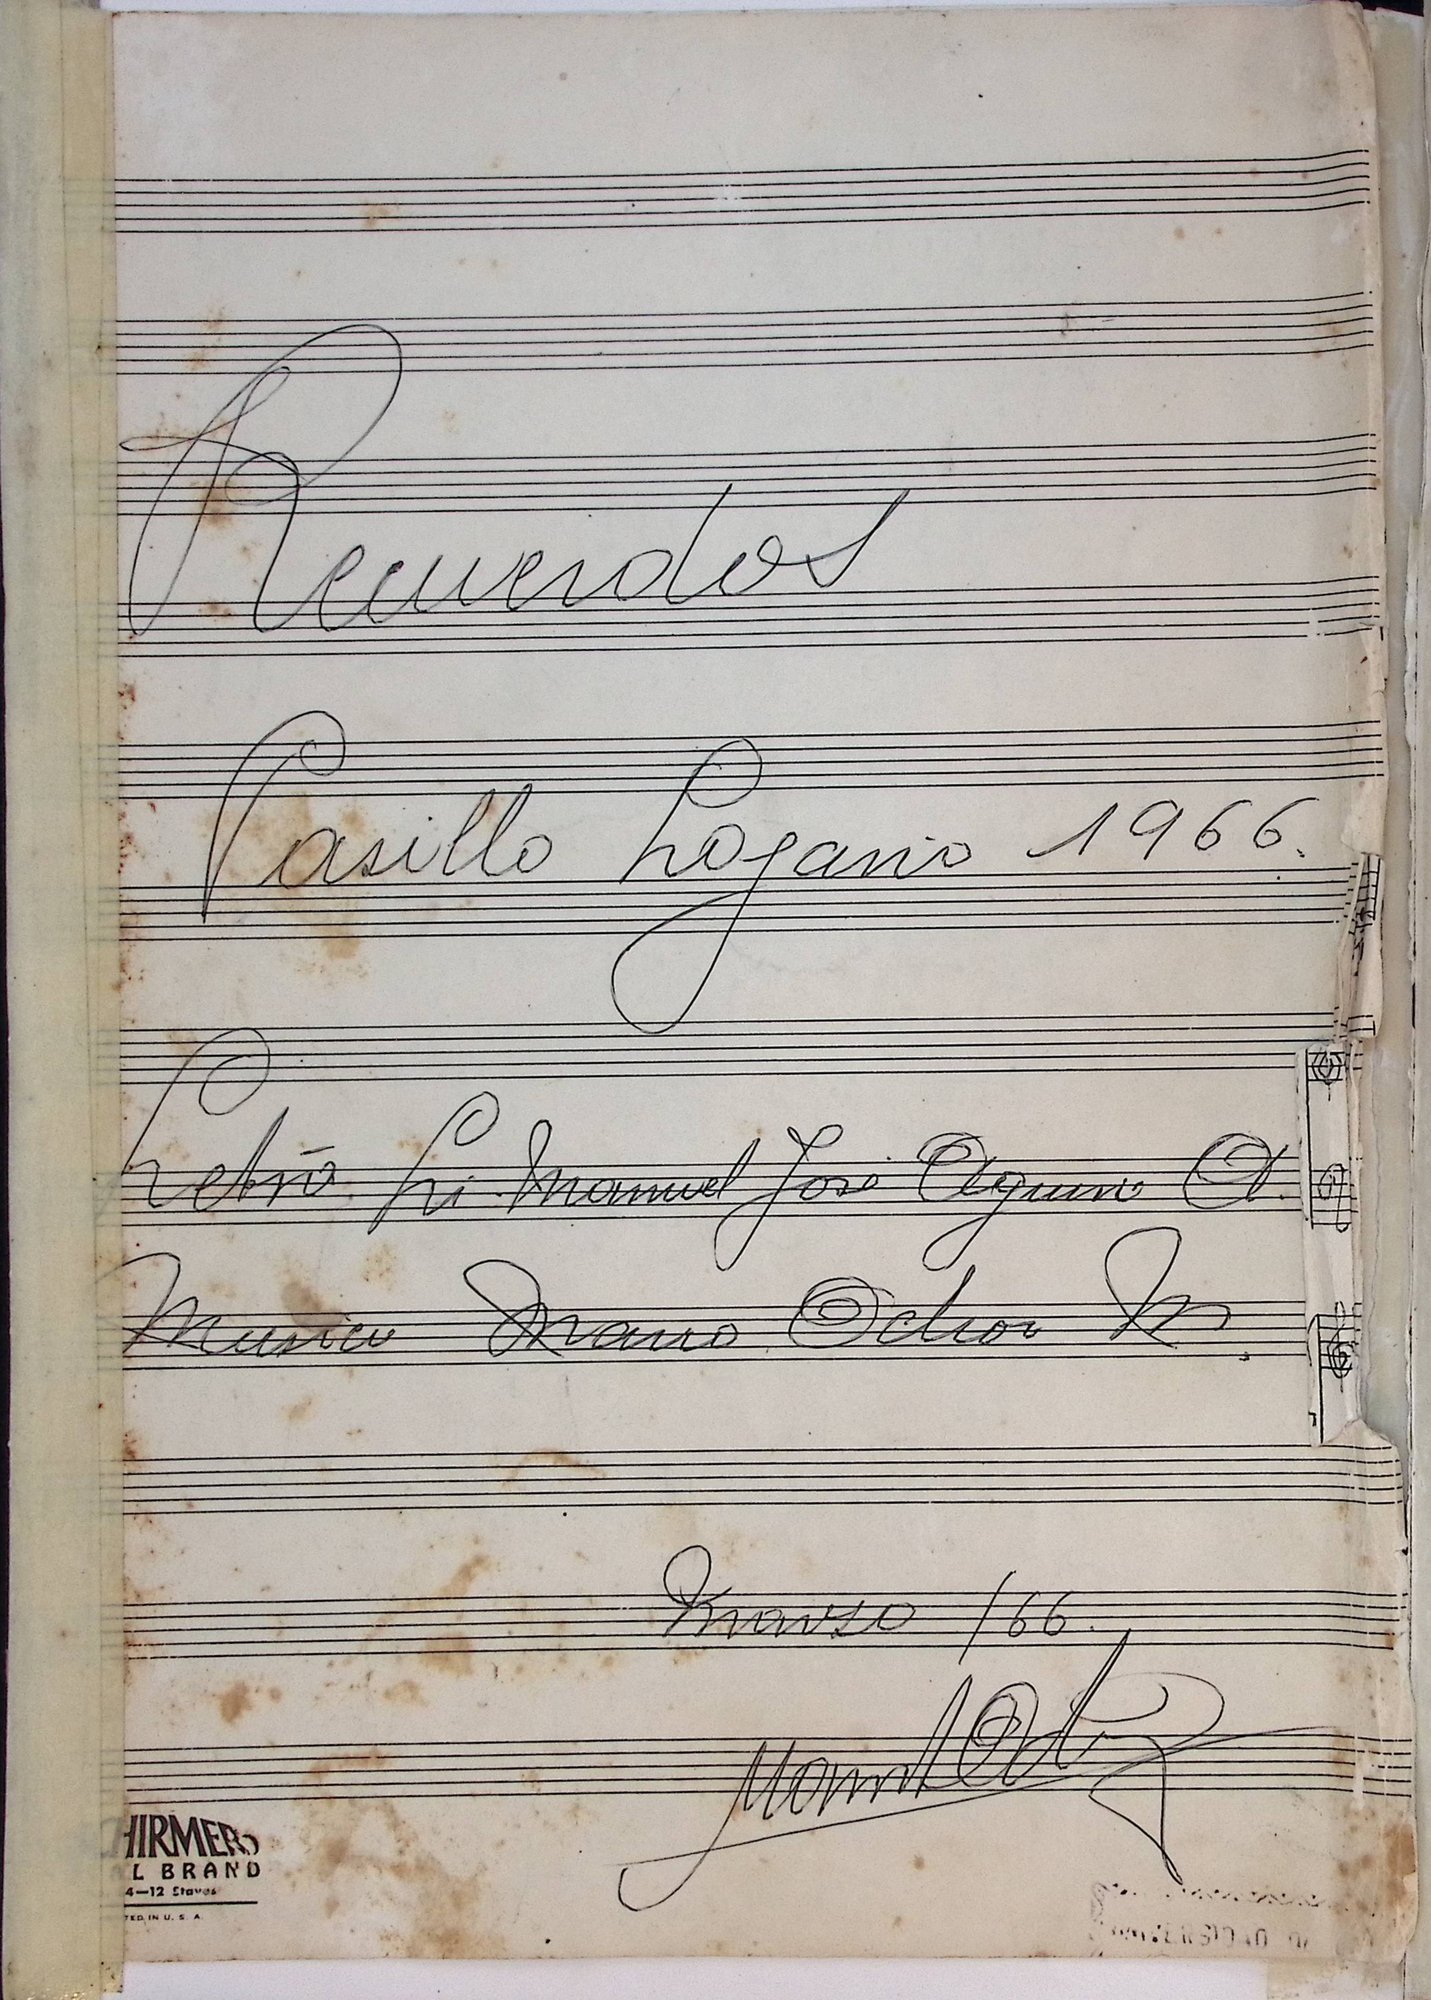 Recuerdos
Pasillo Lojano 1966.
Letra Li. Manuel José Aguirre A.
Musica Mauro Ochoa M.
Marzo /66.
HIRMERS
AL BRAND
4—12 Staves
TED IN U. S. A.